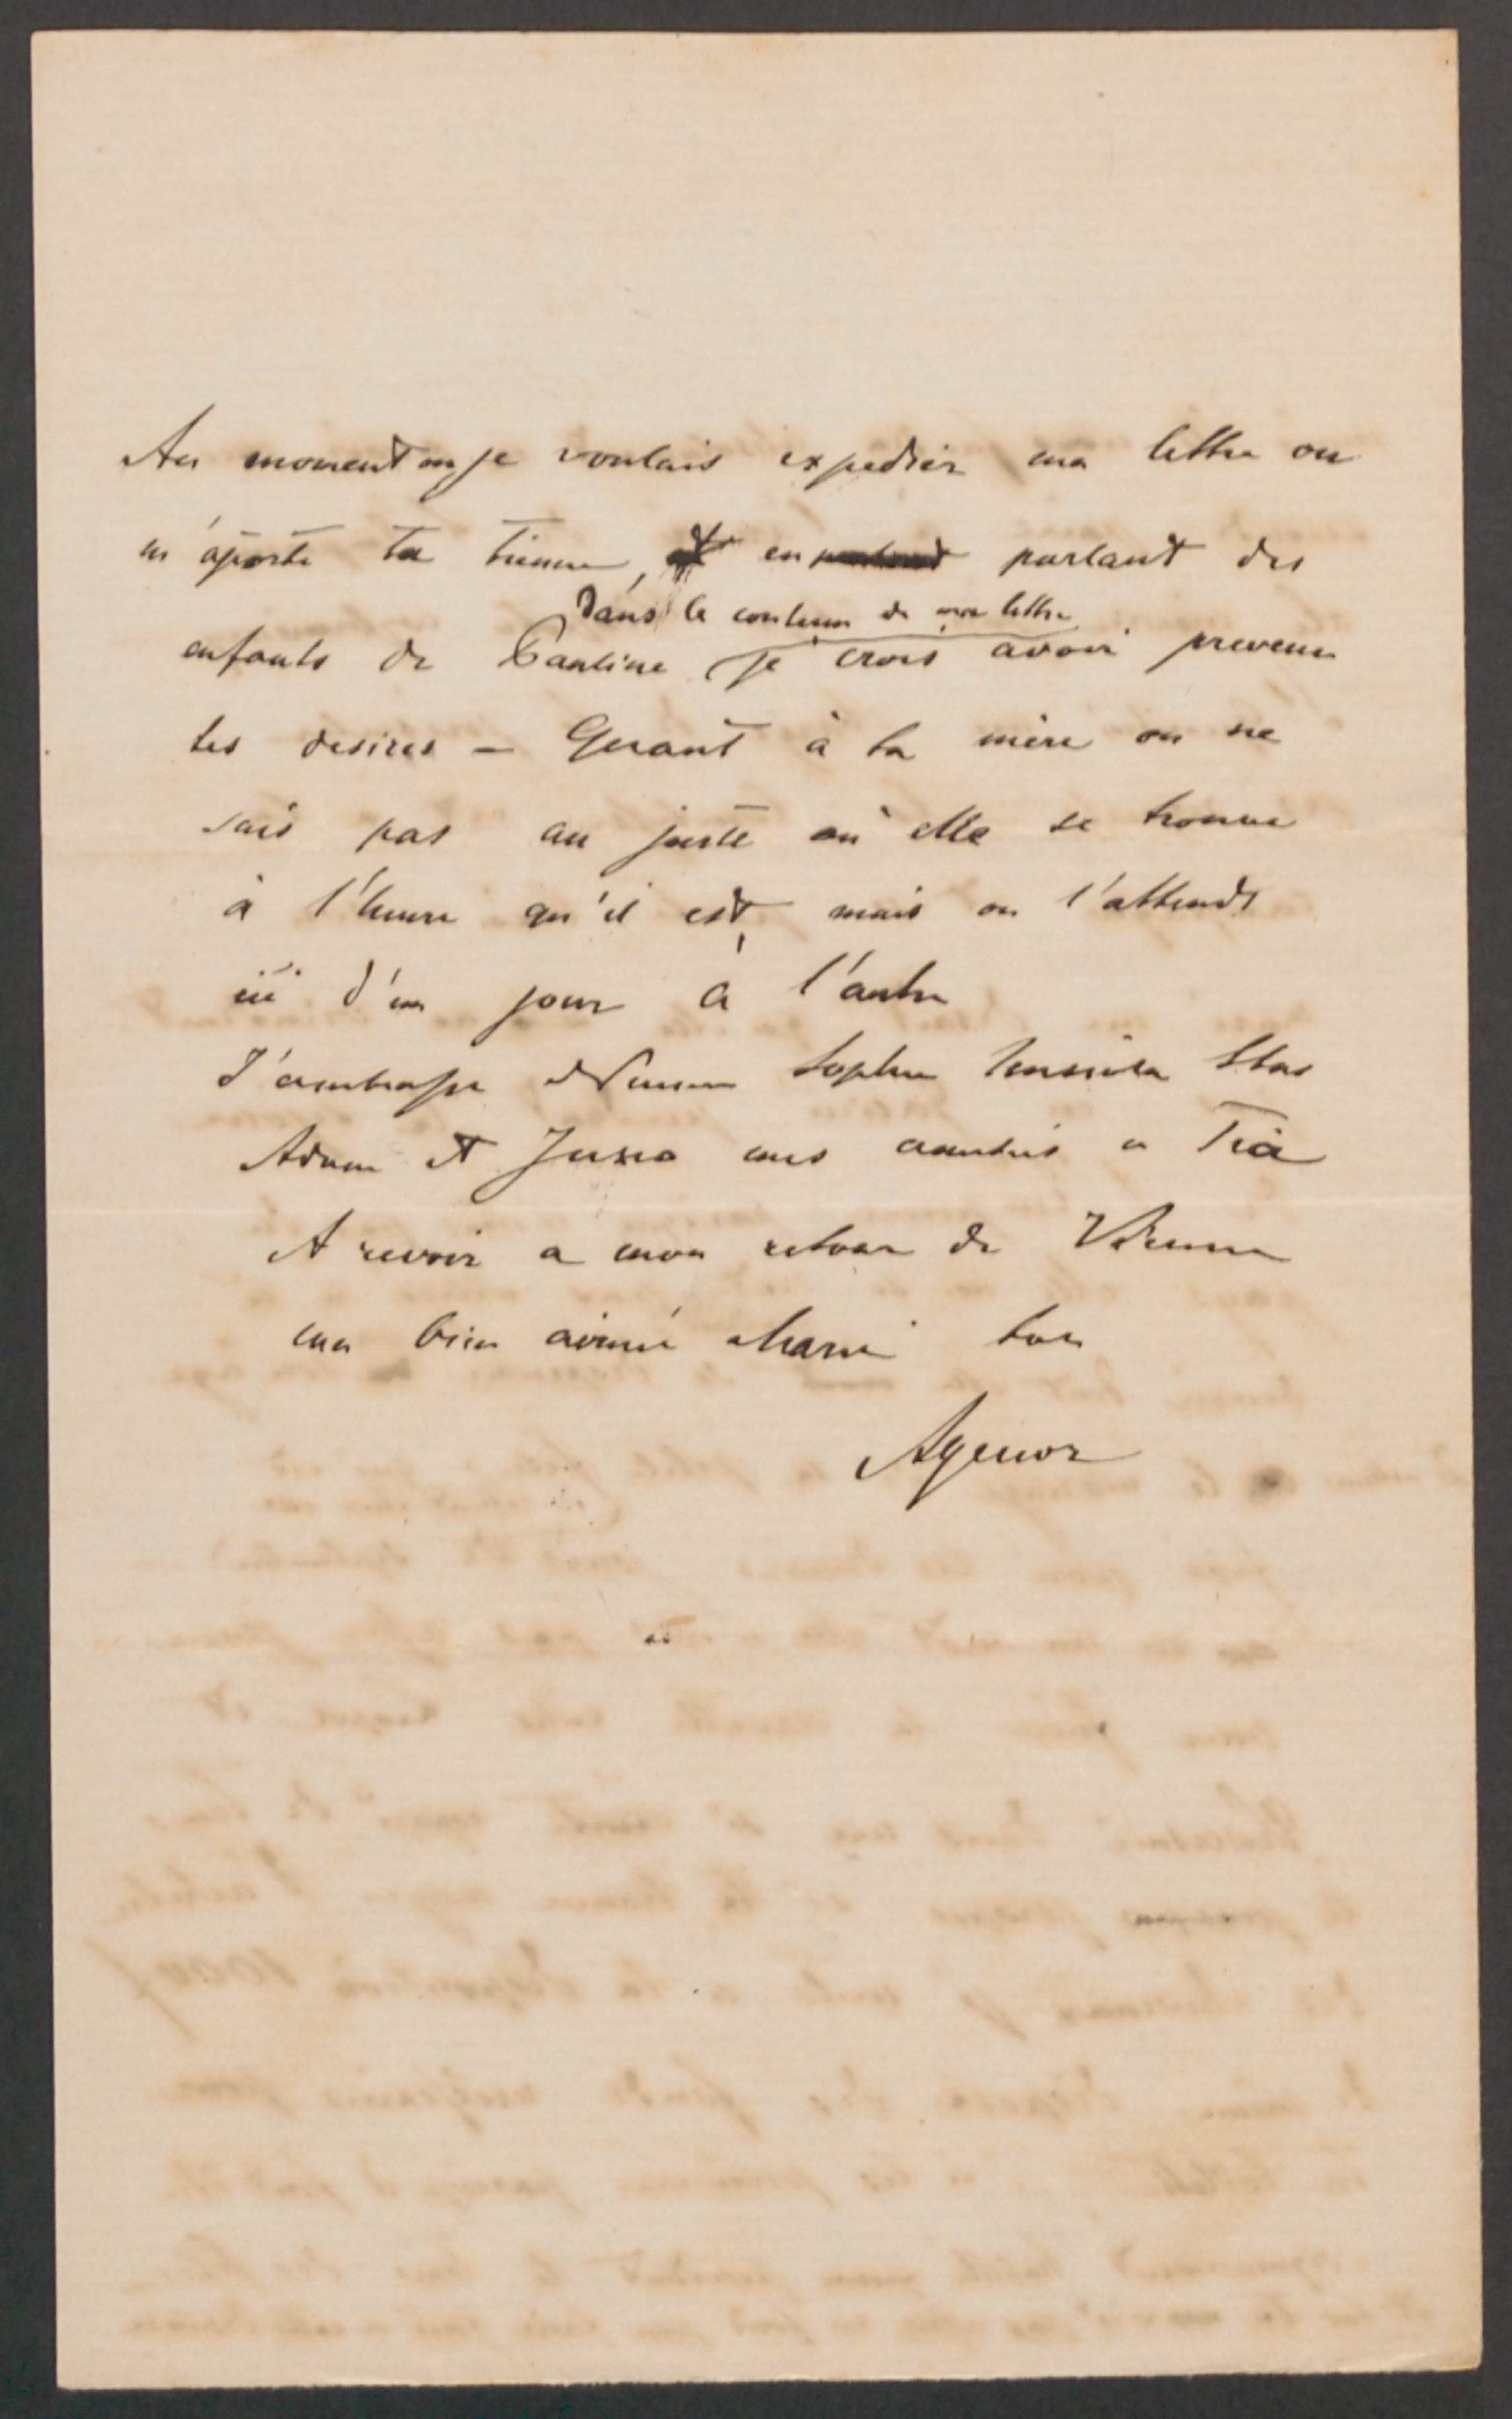 Au moment ou je voulais expedier ma lettre on
m'aporte la tienne, et en parlant des
dans le contenu de ma lettre
enfants de Pauline je crois avoir prevenu
tes desires – Quant à ta mère on ne
sais pas au juste où elle se trouve
à l'heure qu'il est, mais on l'attends
ici d'un jour à l'autre
J'embrasse Sophie Stas
Adam et Juzio mes amitiés a
A revoir a mon retour de Vienne
ma bien aimée Marie ton
Agenor